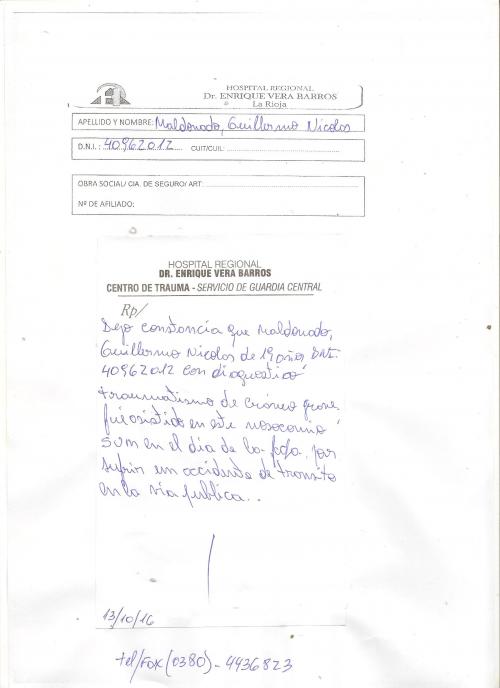 HOSPITAL REGIONAL
Dr. ENRIQUE VERA BARROS
La Rioja
APELLIDO Y NOMBRE: Maldonado, Guillermo Nicolos
D.N.I.: 40962012 CUIT/CUIL:
OBRA SOCIAL/ CIA. DE SEGURO/ ART:
Nº DE AFILIADO:
HOSPITAL REGIONAL
DR. ENRIQUE VERA BARROS
CENTRO DE TRAUMA - SERVICIO DE GUARDIA CENTRAL
Rp/
Dejo constancia que Maldonado,
Guillermo Nicolos de 19 años DNI.
40962012 con diagnostico
traumatismo de cráneo grave
fue asistido en este nosocomio
en el dia de la fcha. por
sufrir un accidente de transito
en la via publica..
13/10/16
tel/Fax (0380) - 4436823